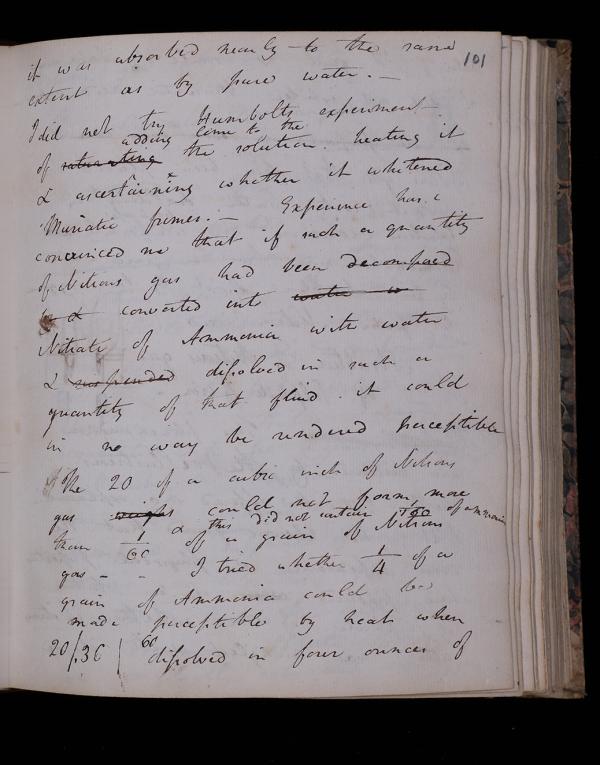 101
it was absorbed nearly to the same
extent as by pure water. —
I did not try Humbolts experiment
adding lime to the
of saturating the solution. heating it
& ascertaining whether it whitened
Muriatic fumes. — Experience has
convinced me that if such a quantity
of Nitrous gas had been decomposed
& converted into water
Nitrate of Ammonia with water
& suspended dissolved in such a
quantity of that fluid. it could
in no way be rendered perceptible
The 20 of a cubic inch of Nitrous
gas weighs could not form more
& this did not contain of ammonia
than 1/60 of a grain of Nitrous
gas - - I tried whether 1/4 of a
grain of Ammonia could be
made perceptible by heat when
20/.36 | 60 dissolved in four ounces of